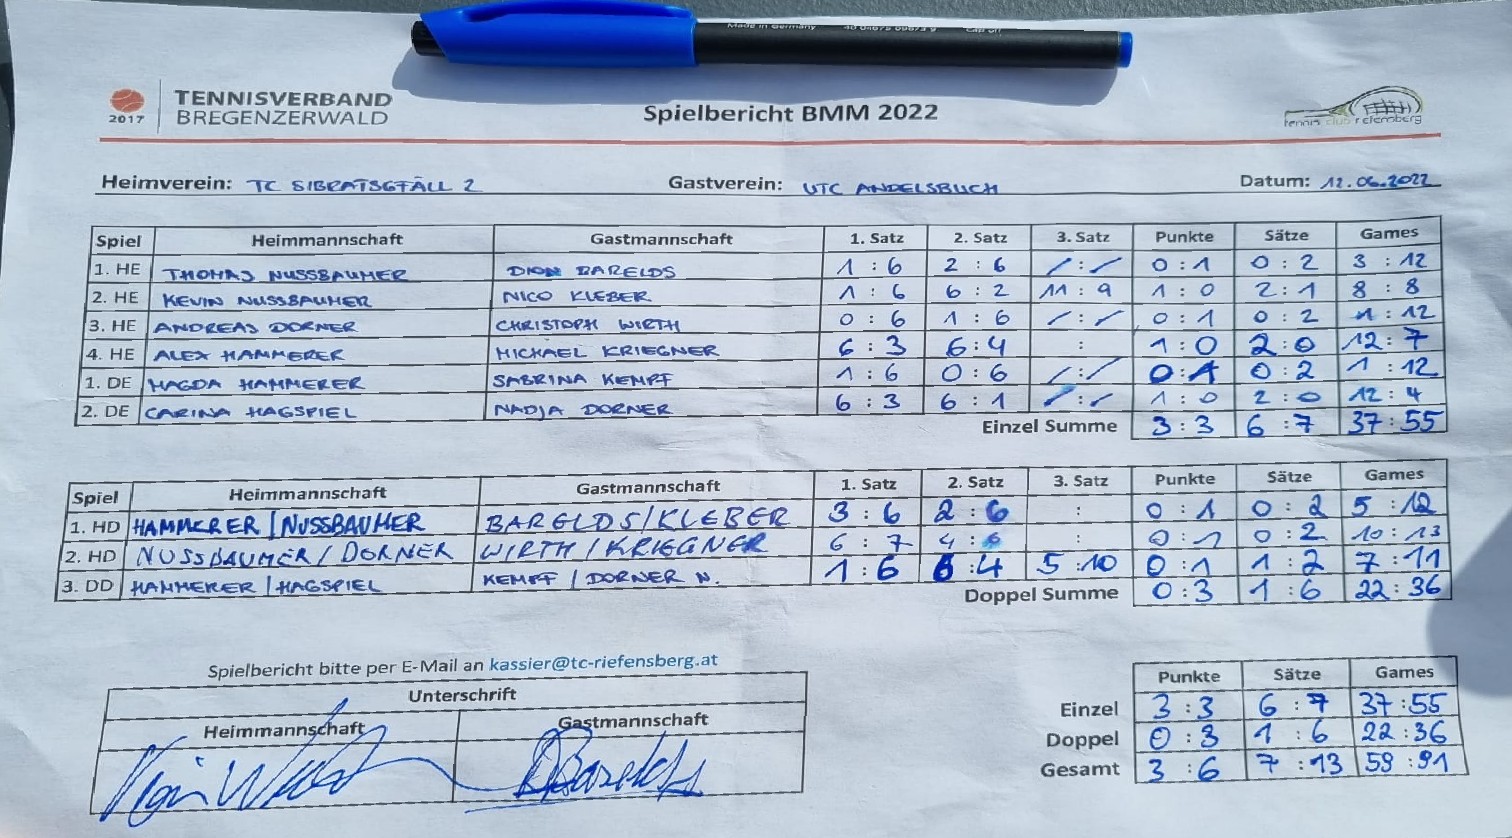 Made in Germany
TENNISVERBAND
BREGENZERWALD
2017
Spielbericht BMM 2022
tennis club riefensberg
Heimverein: TC SIBRATSGFÄLL 2 Gastverein: UTC ANDELSBUCH Datum: 12.06.2022
Spiel Heimmannschaft Gastmannschaft 1. Satz 2. Satz 3. Satz Punkte Sätze Games
1. HE THOMAS NUSSBAUMER DION BARELDS 1 : 6 2 : 6 / : / 0 : 1 0 : 2 3 : 12
2. HE KEVIN NUSSBAUMER NICO KLEBER 1 : 6 6 : 2 11 : 9 1 : 0 2 : 1 8 : 8
3. HE ANDREAS DORNER CHRISTOPH WIRTH 0 : 6 1 : 6 / : / 0 : 1 0 : 2 1 : 12
4. HE ALEX HAMMERER MICHAEL KRIEGNER 6 : 3 6 : 4 : 1 : 0 2 : 0 12 : 7
1. DE MAGDA HAMMERER SABRINA KEMPF 1 : 6 0 : 6 / : / 0 : 1 0 : 2 1 : 12
2. DE CARINA HAGSPIEL NADJA DORNER 6 : 3 6 : 1 / : / 1 : 0 2 : 0 12 : 4
Einzel Summe 3 : 3 6 : 7 37 : 55
Spiel Heimmannschaft Gastmannschaft 1. Satz 2. Satz 3. Satz Punkte Sätze Games
1. HD HAMMERER / NUSSBAUMER BARELDS / KLEBER 3 : 6 2 : 6 : 0 : 1 0 : 2 5 : 12
2. HD NUSSBAUMER / DORNER WIRTH / KRIEGNER 6 : 7 4 : 6 : 0 : 1 0 : 2 10 : 13
3. DD HAMMERER / HAGSPIEL KEMPF / DORNER N. 1 : 6 6 : 4 5 : 10 0 : 1 1 : 2 7 : 11
Doppel Summe 0 : 3 1 : 6 22 : 36
Spielbericht bitte per E-Mail an kassier@tc-riefensberg.at
Unterschrift
Heimmannschaft Gastmannschaft
DBarelds
Punkte Sätze Games
Einzel 3 : 3 6 : 7 37 : 55
Doppel 0 : 3 1 : 6 22 : 36
Gesamt 3 : 6 7 : 13 59 : 91